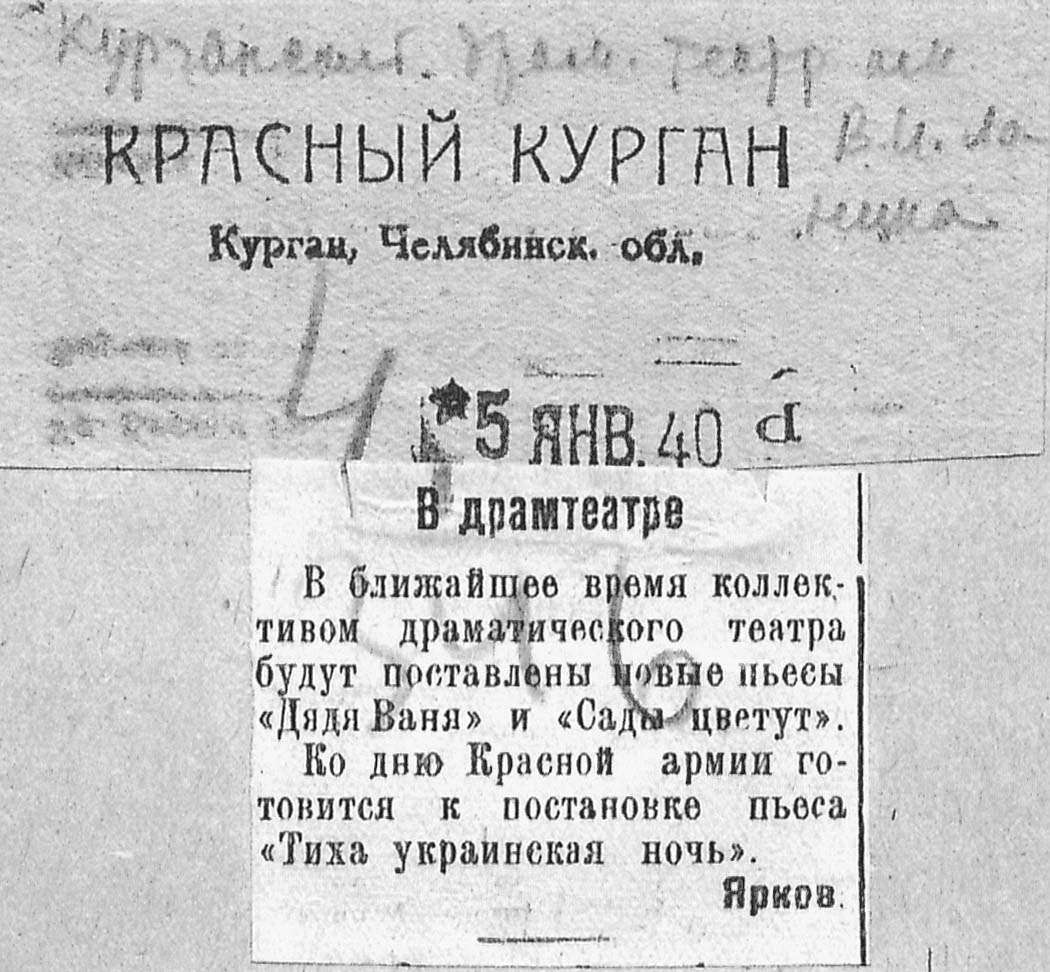 театр им
В.И.
КРАСНЫЙ КУРГАН
Курган, Челябинск. обл.
5 ЯНВ. 40
В драмтеатре
В ближайшее время коллек-
тивом драматического театра
будут поставлены новые пьесы
«Дядя Ваня» и «Сады цветут».
Ко дню Красной армии го-
товится к постановке пьеса
«Тиха украинская ночь».
Ярков.